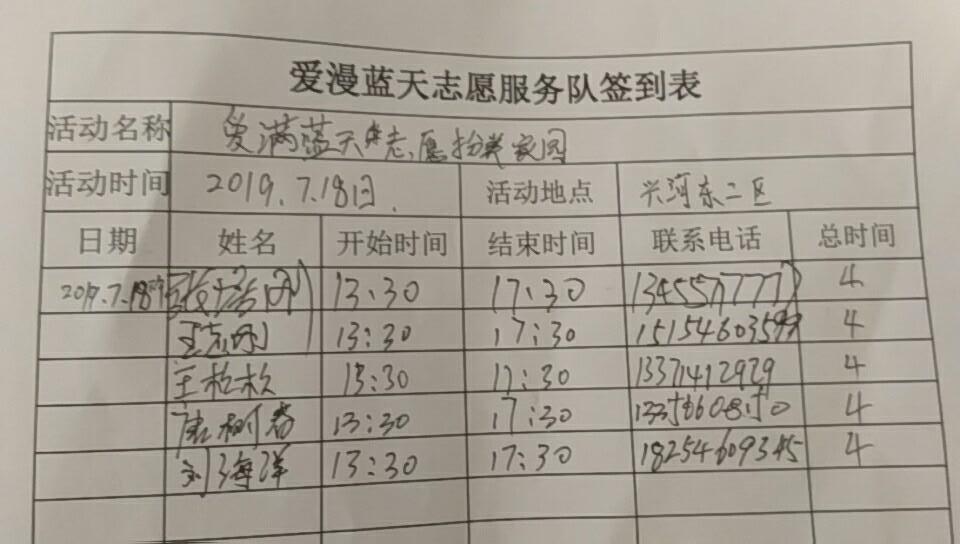 爱漫蓝天志愿服务队签到表
活动名称 爱满蓝天 志愿 家园
活动时间 2019.7.18日. 活动地点 兴河东二区
日期 姓名 开始时间 结束时间 联系电话 总时间
2019.7.18 13:30 17:30 4
13:30 17:30 4
王松松 13:30 17:30 13371412929 4
唐树春 13:30 17:30 4
刘海洋 13:30 17:30 18254609345 4